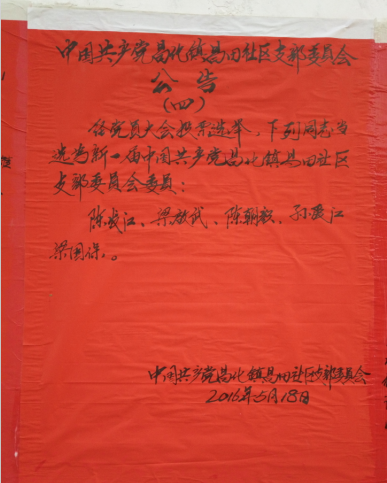 中国共产党昌化镇昌田社区支部委员会
公告
（四）
经党员大会投票选举，下列同志当
选为新一届中国共产党昌化镇昌田社区
支部委员会委员：
陈成江、梁放武、陈朝毅、孙股江
梁国保。
中国共产党昌化镇昌田社区支部委员会
2016年5月18日